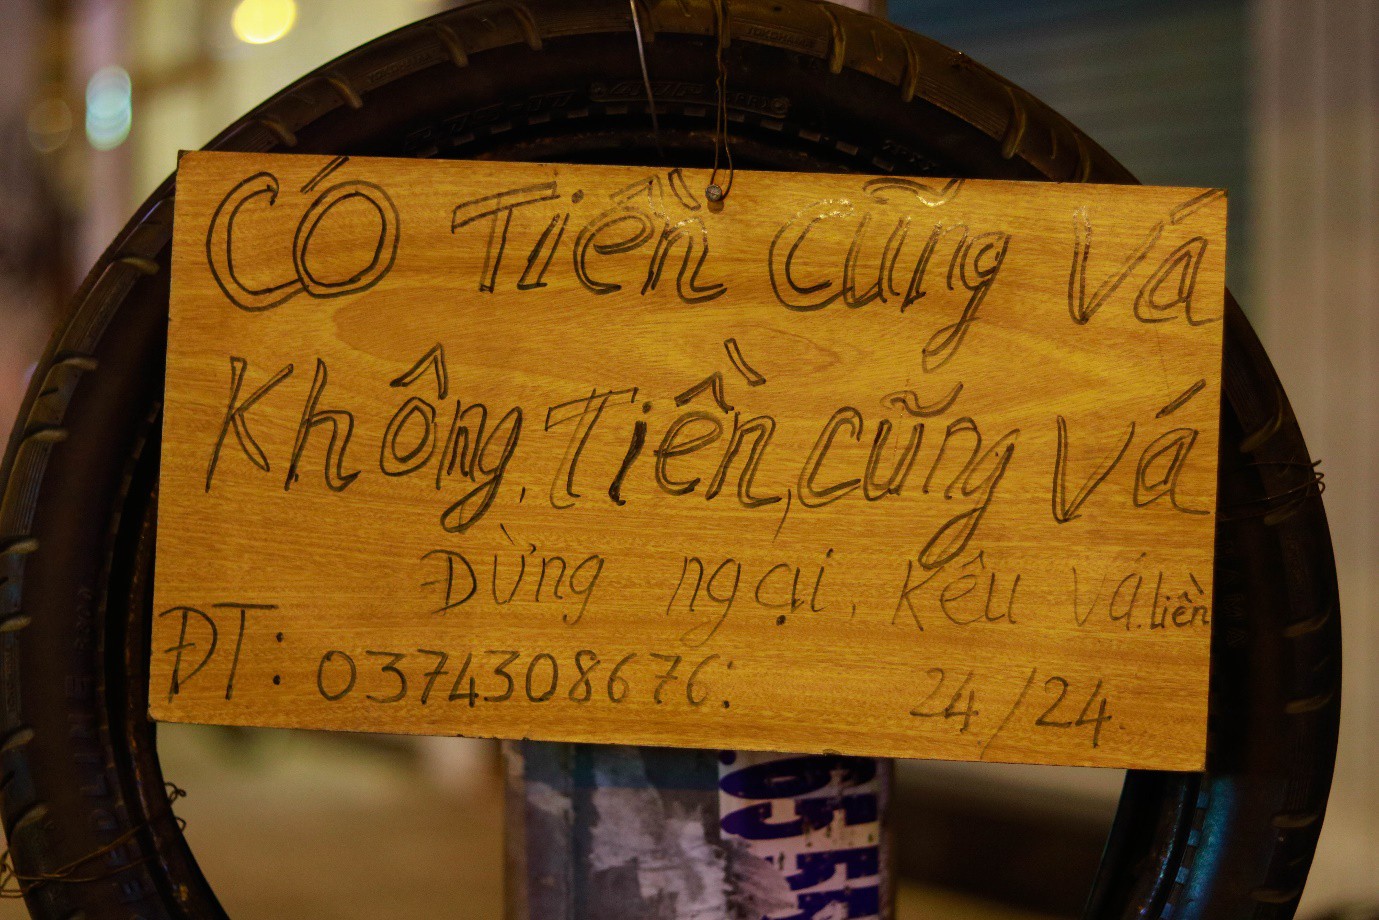 Có Tiền cũng vá
Không, Tiền, cũng vá
Đừng ngại, kêu vá liền
ĐT: 0374308676: 24/24